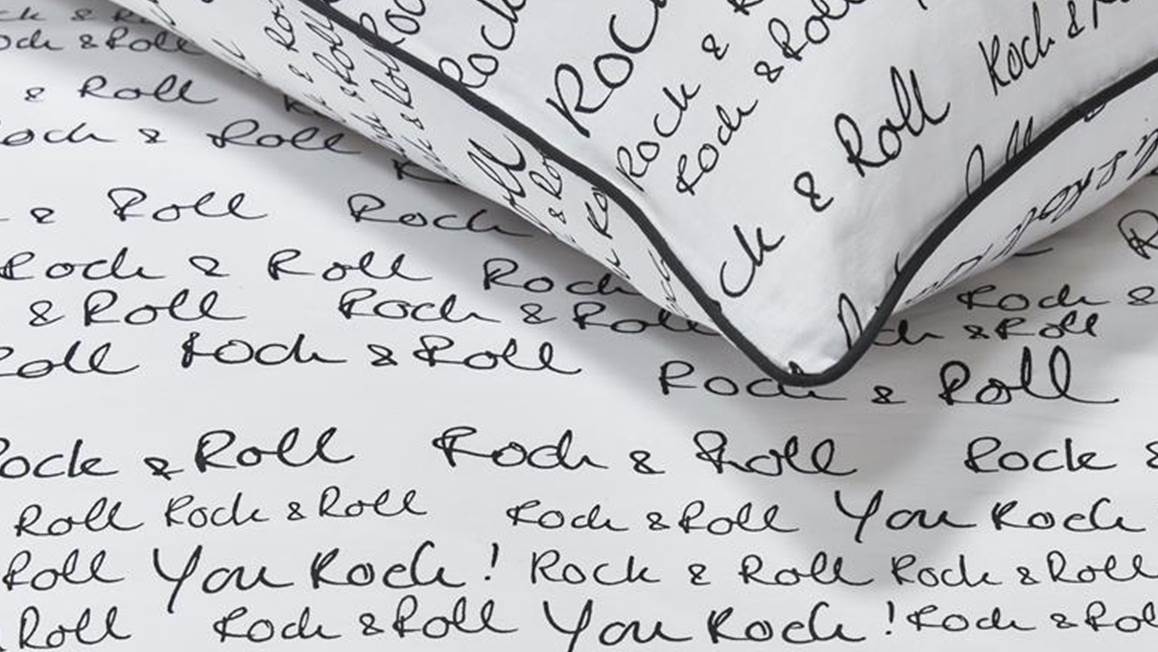 ck & R
ock & Roll
& Roll
ock & Roll
& Roll Rock
Rock & Roll Rock
& Roll Rock & Roll
Roll Rock & Roll
Rock & Roll
Rock & Roll Rock & Roll Rock &
Roll Rock & Roll Rock & Roll You Rock
Roll You Rock! Rock & Roll Rock & Roll
Roll Rock & Roll You Rock! Rock & Rol
Rock &
& Roll
Rock
Rock
Rock &
Rock & Roll
ck & Roll
Rock &